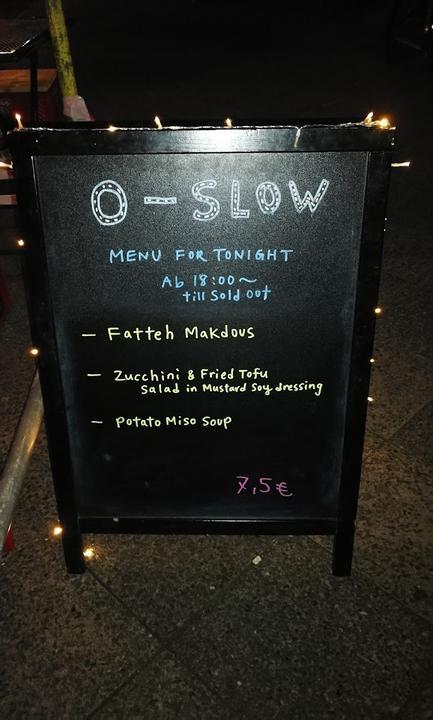 O-SLOW
MENU FOR TONIGHT
Ab 18:00~
till Sold out
- Fatteh Makdous
- Zucchini & Fried Tofu
Salad in Mustard Soy dressing
- Potato Miso Soup
7,5€